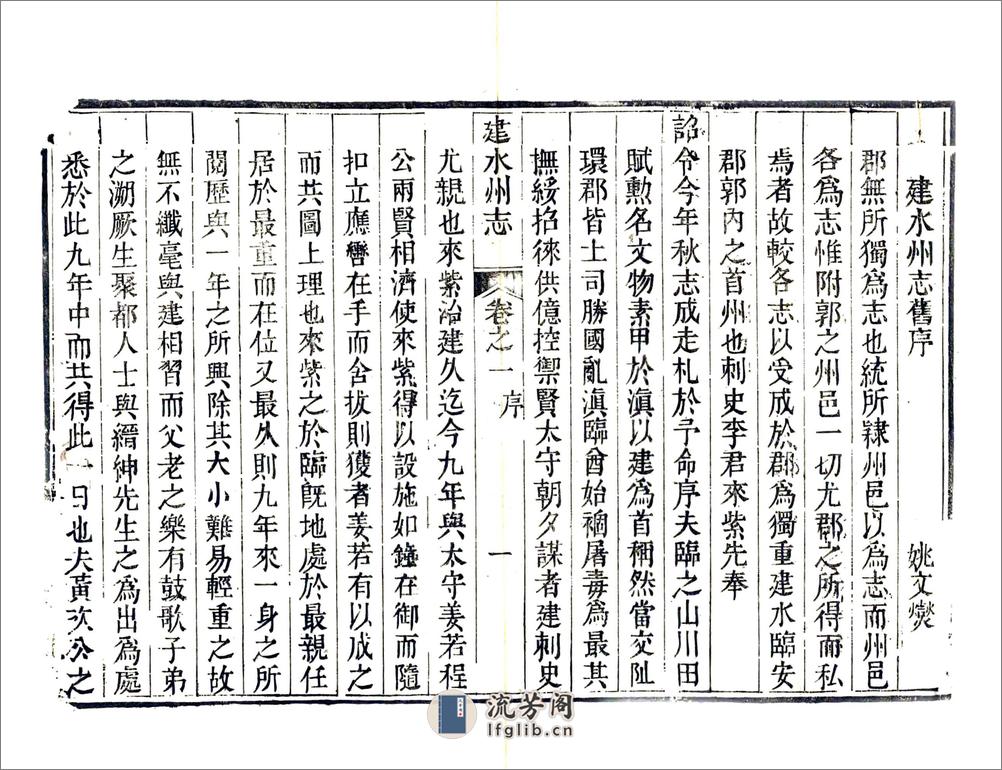 建水州志舊序　姚文燮
郡無所獨爲志也統所隷州邑以爲志而州邑
各爲志惟附郭之州邑一切尤郡之所得而私
焉者故較各志以受成於郡爲獨重建水臨安
郡郭內之首州也刺史李君來紫先奉
詔令今年秋志成走札於予命序夫臨之山川田
賦勲名文物素甲於滇以建爲首稱然當交阯
環郡皆土司勝國亂滇臨酋始禍屠毒爲最其
撫綏招徠供億控禦賢太守朝夕謀者建刺史
建水州志　卷之一　序　一
尤親也來紫治建久迄今九年與太守姜若程
公兩賢相濟使來紫得以設施如錘在御而隨
扣立應轡在手而舍拔則獲者姜若有以成之
而共圖上理也來紫之於臨旣地處於最親任
居於最重而在位又最久則九年來一身之所
閱歷與一年之所興除其大小難易輕重之故
無不纖毫與建相習而父老之樂有鼓歌子弟
之溯厥生聚都人士與縉紳先生之爲出爲處
悉於此九年中而共得此一日也夫黃次公之
流芳阁
lfglib.cn